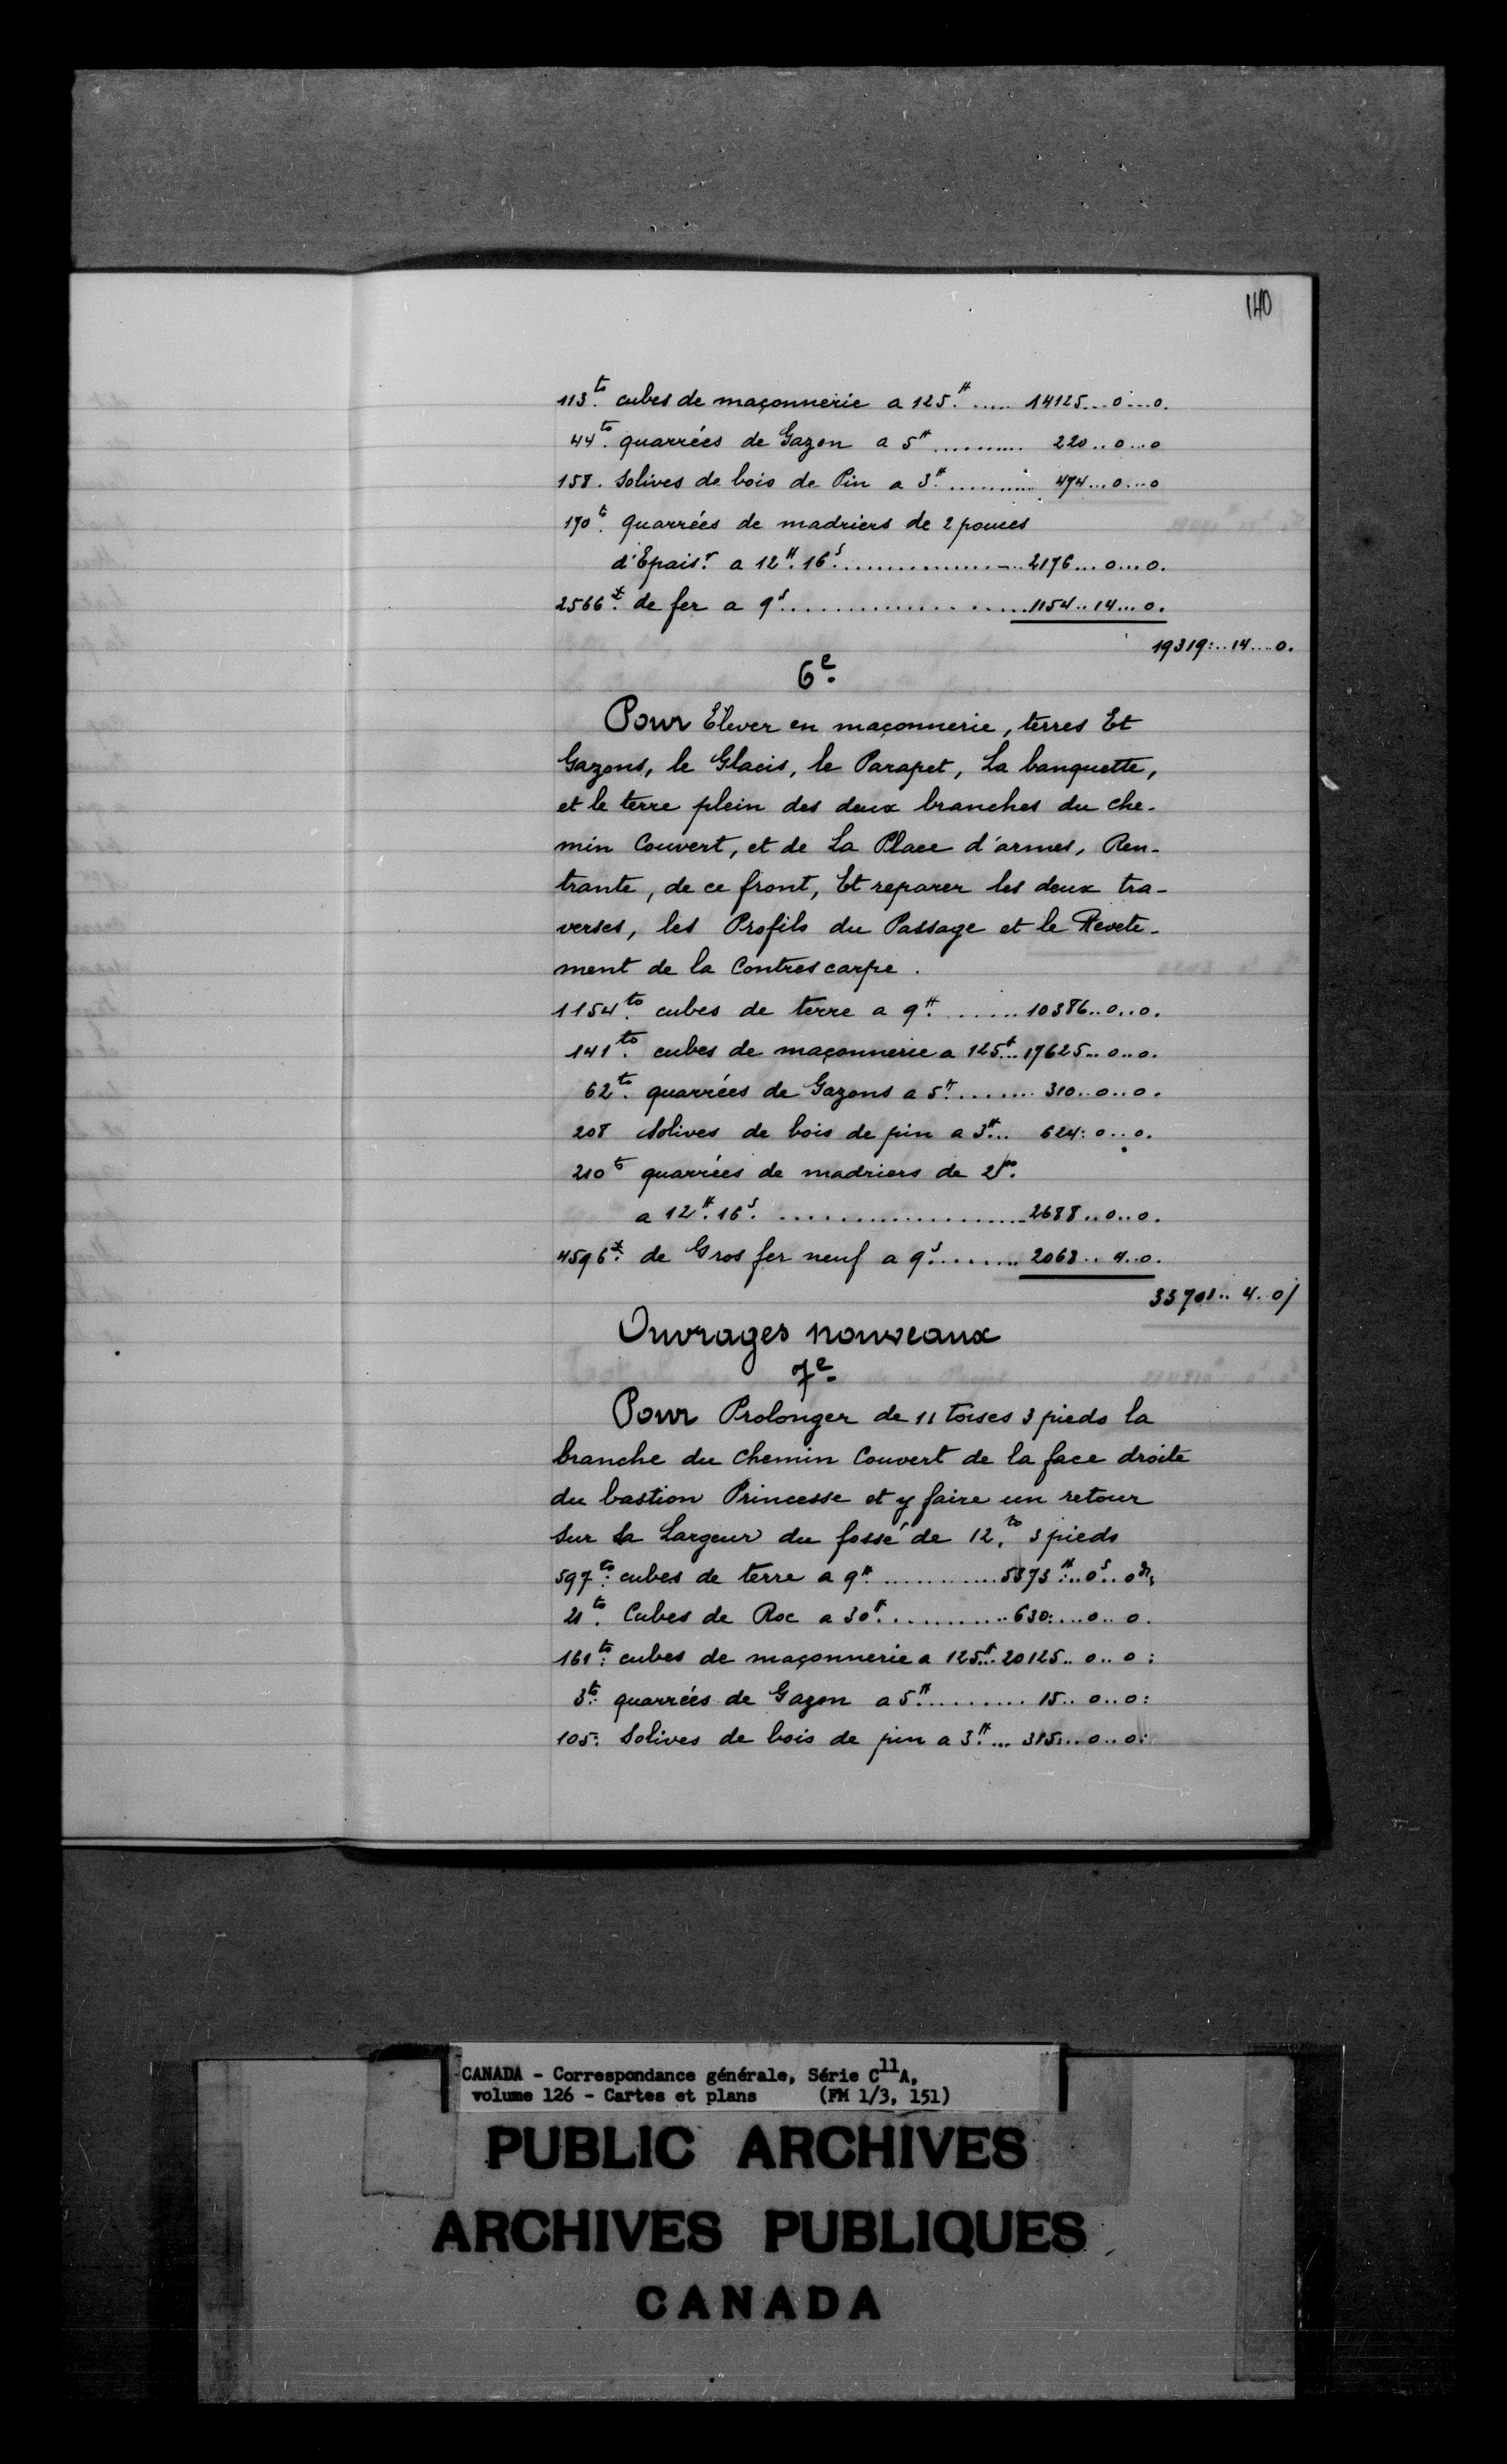 140
113.to cubes de maçonnerie a 125.# ..... 14125...0...0.
44.to quarrées de Gazon a 5# .......... 220..0...0
158. Solives de bois de Pin a 3.# .......... 474...0...0
170.to quarrées de madriers de 2 pouces
d'Epais.r a 12.# 16s. .................. 2176...0...0.
2566.# de fer a 9s. .................. 1154..14...0.
19319:..14...0.
6e.
Pour Elever en maçonnerie, terres Et
Gazons, le Glacis, le Parapet, La banquette,
et le terre plein des deux branches du che-
min Couvert, et de La Place d'armes, Ren-
trante, de ce front, Et reparer les deux tra-
verses, les Profils du Passage et le Revete-
ment de la Contrescarpe.
1154.to cubes de terre a 9.# ....... 10386..0..0.
141.to cubes de maçonnerie a 125.#.. 17625..0..0.
62.to quarrées de Gazons a 5.# ....... 310..0..0.
208 Solives de bois de pin a 3.#.. 624:0...0.
210to quarrées de madriers de 2po.
a 12.# 16s. .................... 2688..0..0.
4596.# de Gros fer neuf a 9s. ....... 2068..4..0.
33701..4..0/
Ouvrages nouveaux
7e.
Pour Prolonger de 11 toises 3 pieds la
branche du Chemin Couvert de la face droite
du bastion Princesse et y faire un retour
Sur La Largeur du fossé de 12.to 3 pieds
597.to cubes de terre a 9# ........... 5373#:..0s..0ds
21.to Cubes de Roc a 30.# ........... 630:...0..0.
161:to cubes de maçonnerie a 125.#.. 20125..0..0:
3.to quarrées de Gazon a 5.# ......... 15..0..0:
105: Solives de bois de pin a 3.#... 315:..0..0:
CANADA - Correspondance générale, Série C11A,
volume 126 - Cartes et plans (FM 1/3, 151)
PUBLIC ARCHIVES
ARCHIVES PUBLIQUES
CANADA